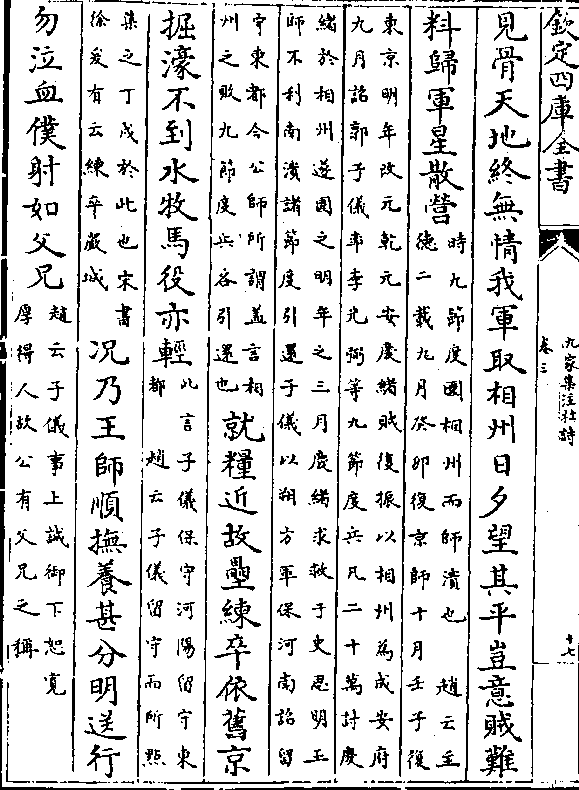 欽定四庫全書
九家集注杜詩
卷三
十七
見骨天地終無情我軍取相州日夕望其平豈意賊難
料歸軍星散營
時九節度圍相州而師潰也 趙云至
德二載九月癸卯復京師十月壬子復
東京明年改元乾元安慶緒賊復振以相州為成安府
九月詔郭子儀率李光弼等九節度兵凡二十萬討慶
緒於相州遂圍之明年之三月慶緒求救于史思明王
師不利南潰諸節度引還子儀以朔方軍保河南詔留
守東都今公師所謂蓋言相
州之敗九節度兵各引還也
就糧近故壘練卒依舊京
掘濠不到水牧馬役亦輕
此言子儀保守河陽留守東
都 趙云子儀留守而所點
集之丁戍於此也宋書
徐爰有云練卒嚴城
况乃王師順撫養甚分明送行
勿泣血僕射如父兄
趙云子儀事上誠御下恕寛
厚得人故公有父兄之稱